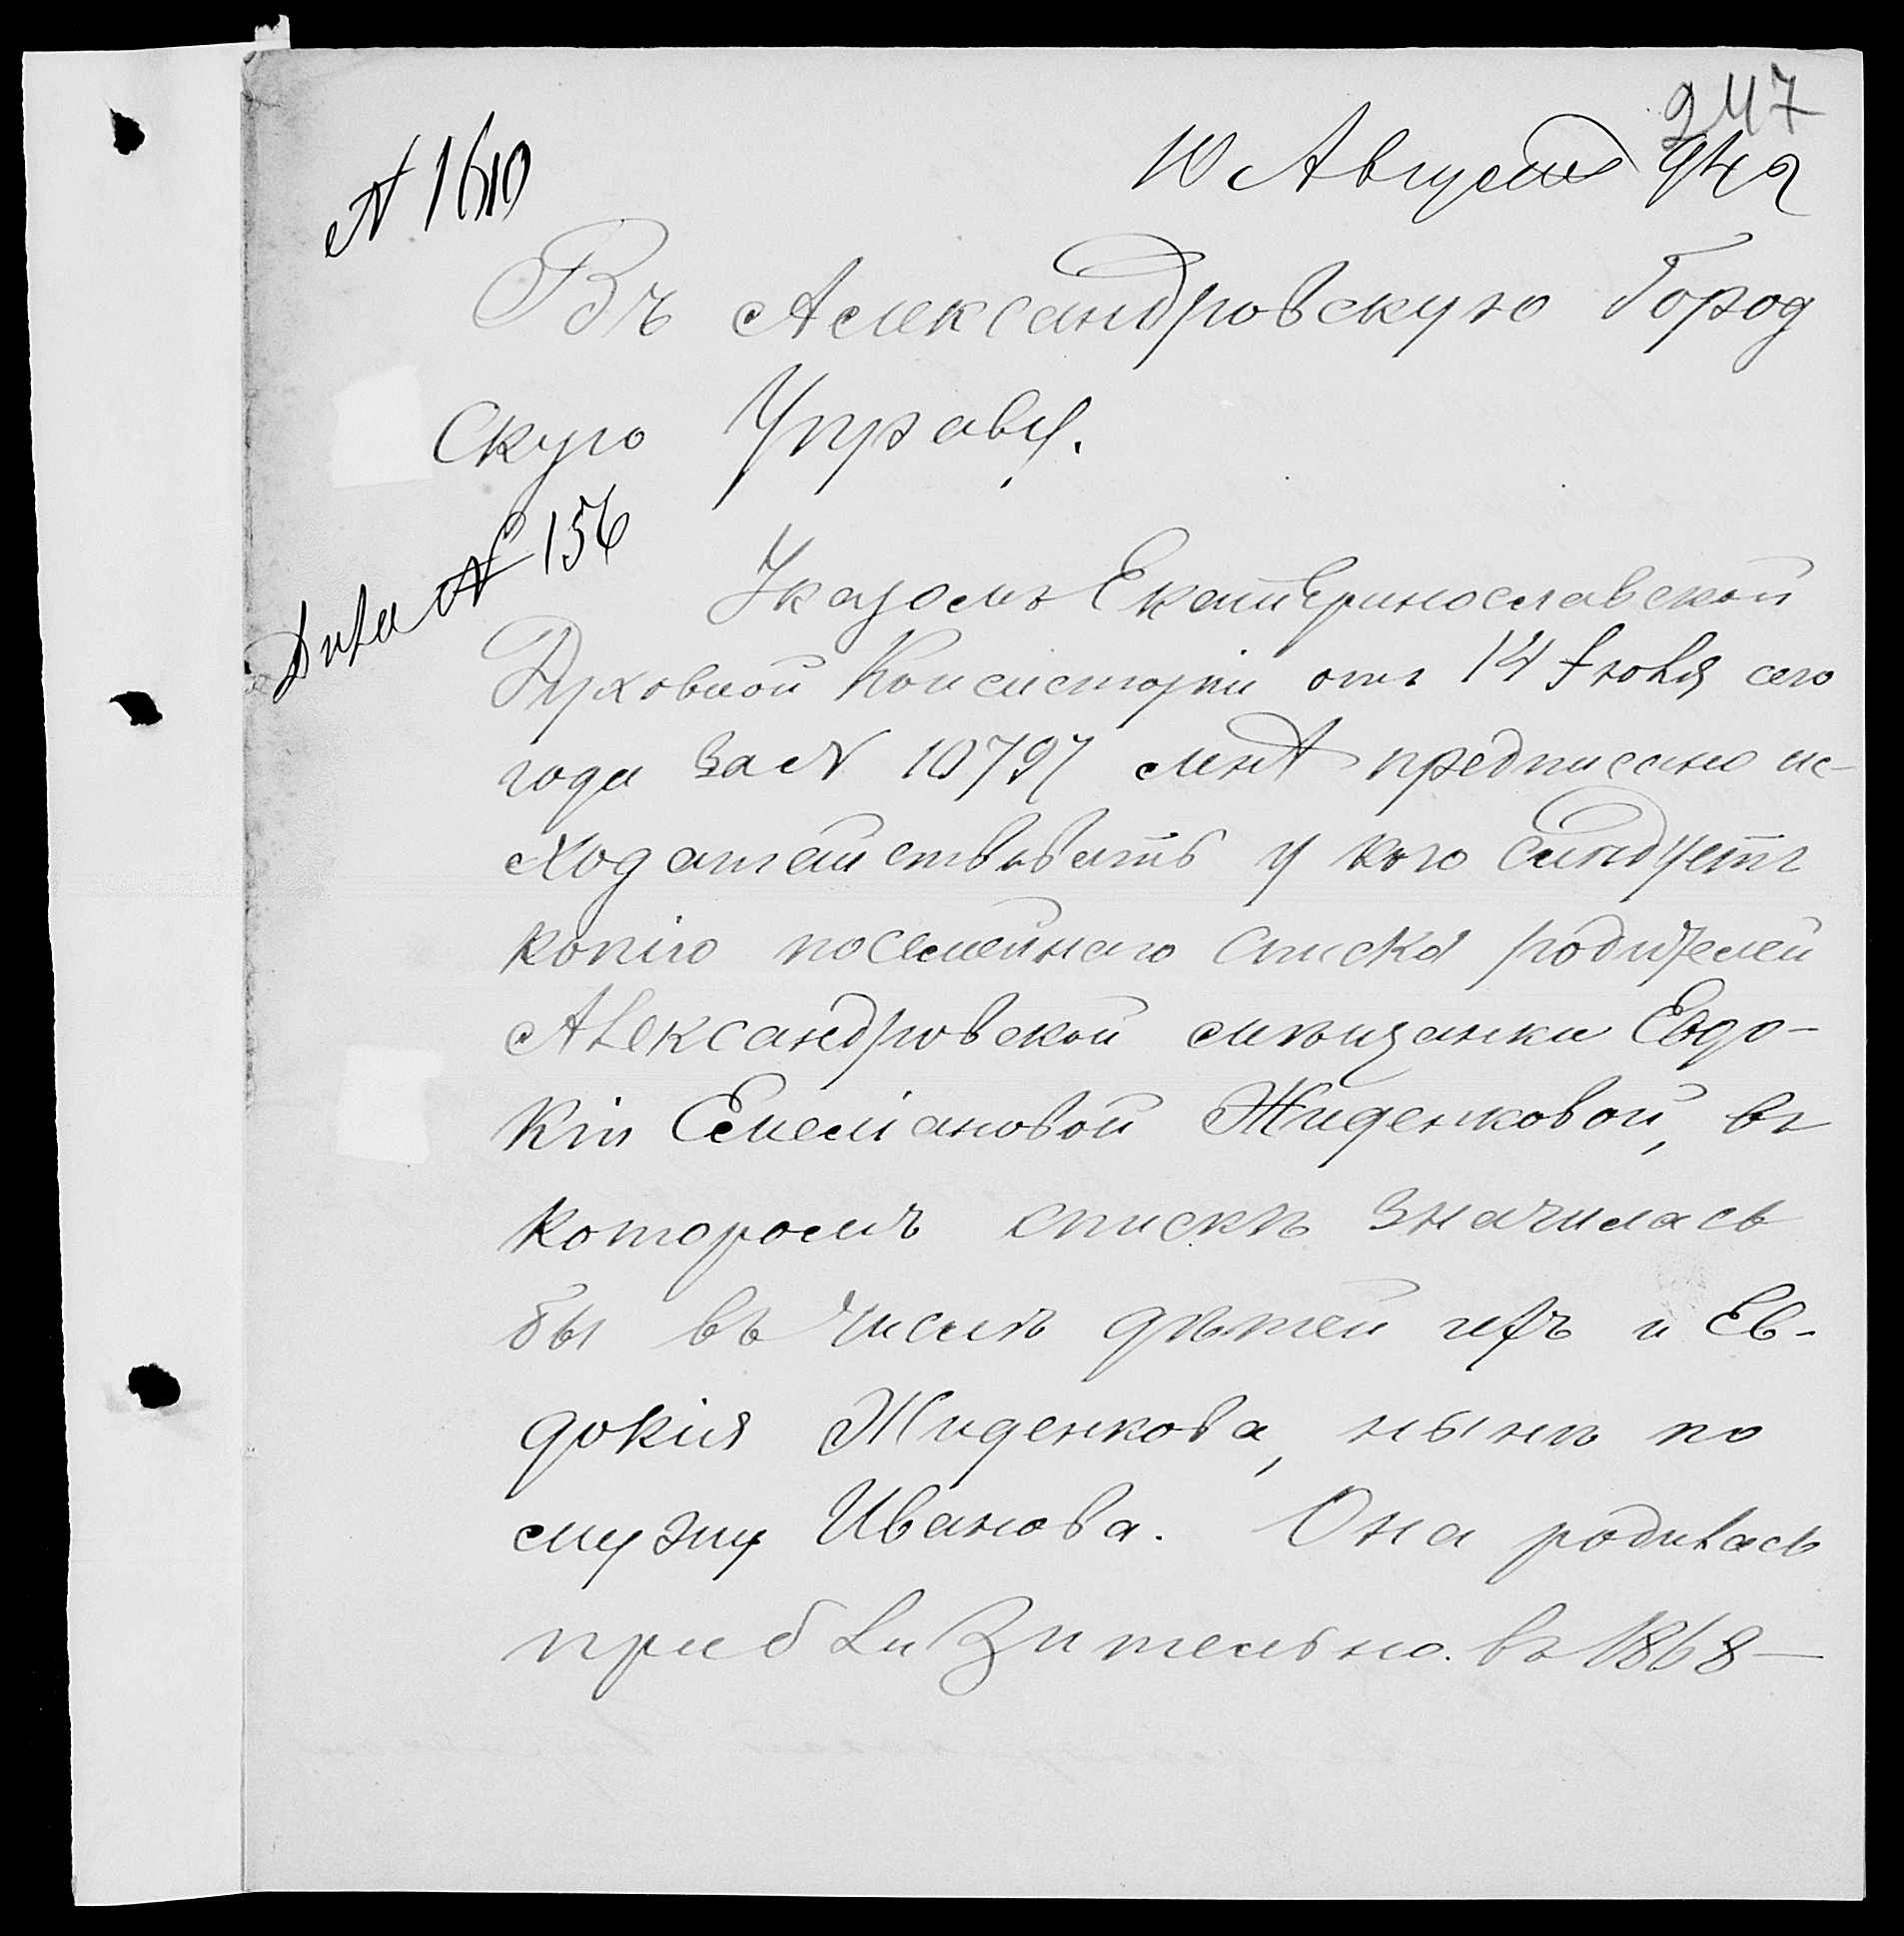 247
10 Августа 94 г
№ 1610
Въ Александровскую Город
скую Управу.
Дѣла № 156
Указомъ Екатеринославской
Духовной Консисторіи отъ 14 Іюля сего
года за № 10797 мнѣ предписано ис-
ходатайствовать у кого слѣдуетъ
копію посемейнаго списка родителей
Александровской мѣщанки Евдо-
кіи Емеліановой Жиденковой, въ
которомъ спискѣ значилась
бы въ числѣ дѣтей ихъ и Ев-
докія Жиденкова, нынѣ по
мужу Иванова. Она родилась
приблизительно въ 1868 —